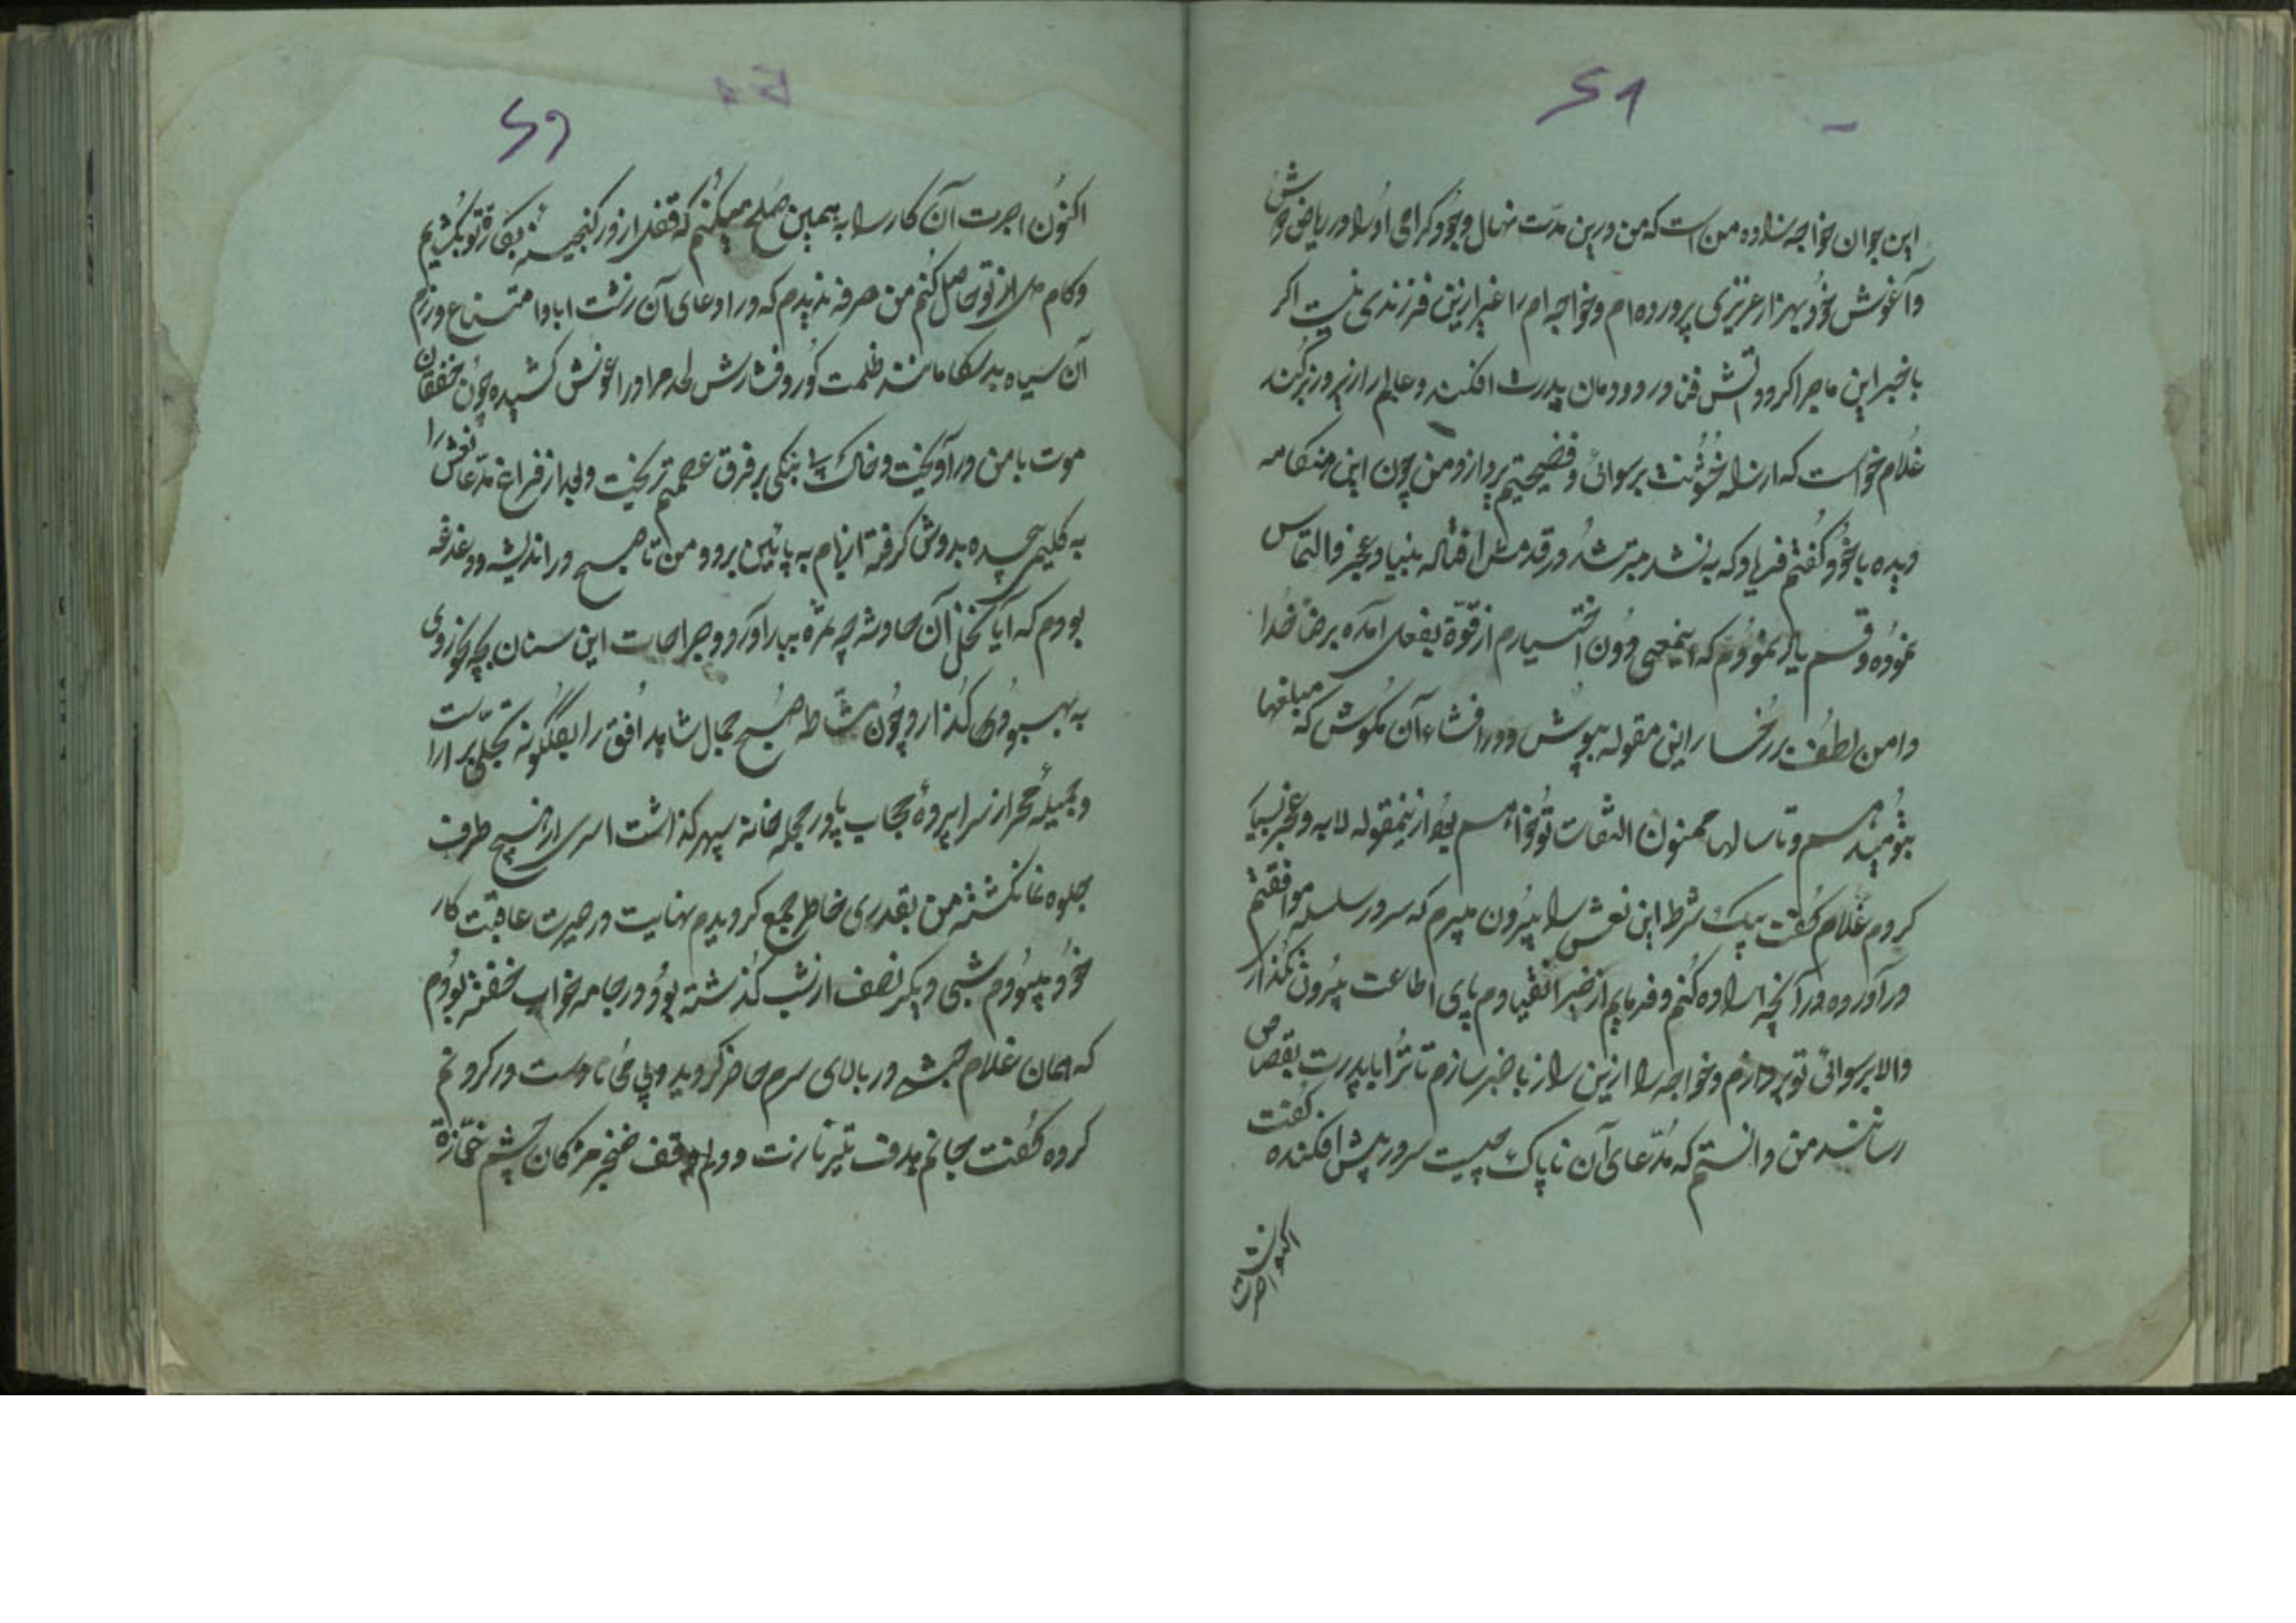 ۶۸
این جوان خواجه زاده من است که من درین مدت نهال وجود کرامی او را در ریاض
و آغوش خود بهزار عزیزی پرورده ام و خواجه ام را غیر ازین فرزندی نیست اکر
با خبر این ماجرا کردد آتش فتن در دودمان پدرت افکند و عالم را زیر و زبر کند
غلام خواست که از نزله خوئنت برسوائی و فضیحتم پردازد من چون این هنکامه
دیده با خود کفتم فریاد که بد نشد بتر شد در قدمش افتاله بنیاد عجز و التماس
نموده و قسم یاد نمودم که اینمعنی دون اختیارم از قوة بفعل آمده برضا خدا
دامن لطف بر رخسار این مقوله بپوش و در افشاء آن مکوش که مبلغها
بتو میدهم و تا سالها ممنون التفات تو خواهم بود ازینمقوله لابه و عجز بسیار
کردم غلام کفت بیک شرط این نعش را بیرون میبرم که سر در سلسله موافقتم
درآورده در آنچه اراده کنم و فرمایم از خیر انقیادم پای اطاعت بیرون نکذار
والا برسوائی تو پردازم و خواجه را ازین راز با خبر سازم تا ترا با پدرت بقصاص
رسانند من دانستم که مدعای آن ناپاک چیست سر در پیش افکنده کفت
اکنون اجرت
۶۹
اکنون اجرت آن کار را به همین صلح میکنم که قفل از در کنجینه بکارة تو بکشایم
و کام دل از تو حاصل کنم من صرفه ندیدم که در ادعای آن زشت ابا و امتناع ورزم
آن سیاه بدلقا مانند ظلمت کور و فشارش لحد مرا در اغوش کشیده چون خفقان
موت با من درآویخت و خاک بی ننکی بر فرق عصمتم ریخت و بعد از فراغ مدعا نعش را
به کلیمی چیده بدوش کرفته از بام به پائین برد و من تا صبح در اندیشه و دغدغه
بودم که آیا نخل آن حادثه چه ثمره ببار آورد و جراحات این سنان بچه نحو روی
به بهبودی کذارد چون مشاطه صبح جمال شاهد افق را بکلکونه تجلی بر آراست
و جمیله مهر از سراپرده حجاب پا در حجله خانه سپهر کذاشت اسری از هیچ طرف
بجلوه نما نکشته من بقدری خاطر جمع کردیدم نهایت در حیرت عاقبت کار
خود میبودم شبی دیکر نصف از شب کذشته بود و در جامه خواب خفته بودم
که همان غلام حبشی در بالای سرم حاضر کردید و بی محابا دست در کردنم
کرده کفت جانم هدف تیر نازت و دلم وقف خنجر مژکان چشم غمازة